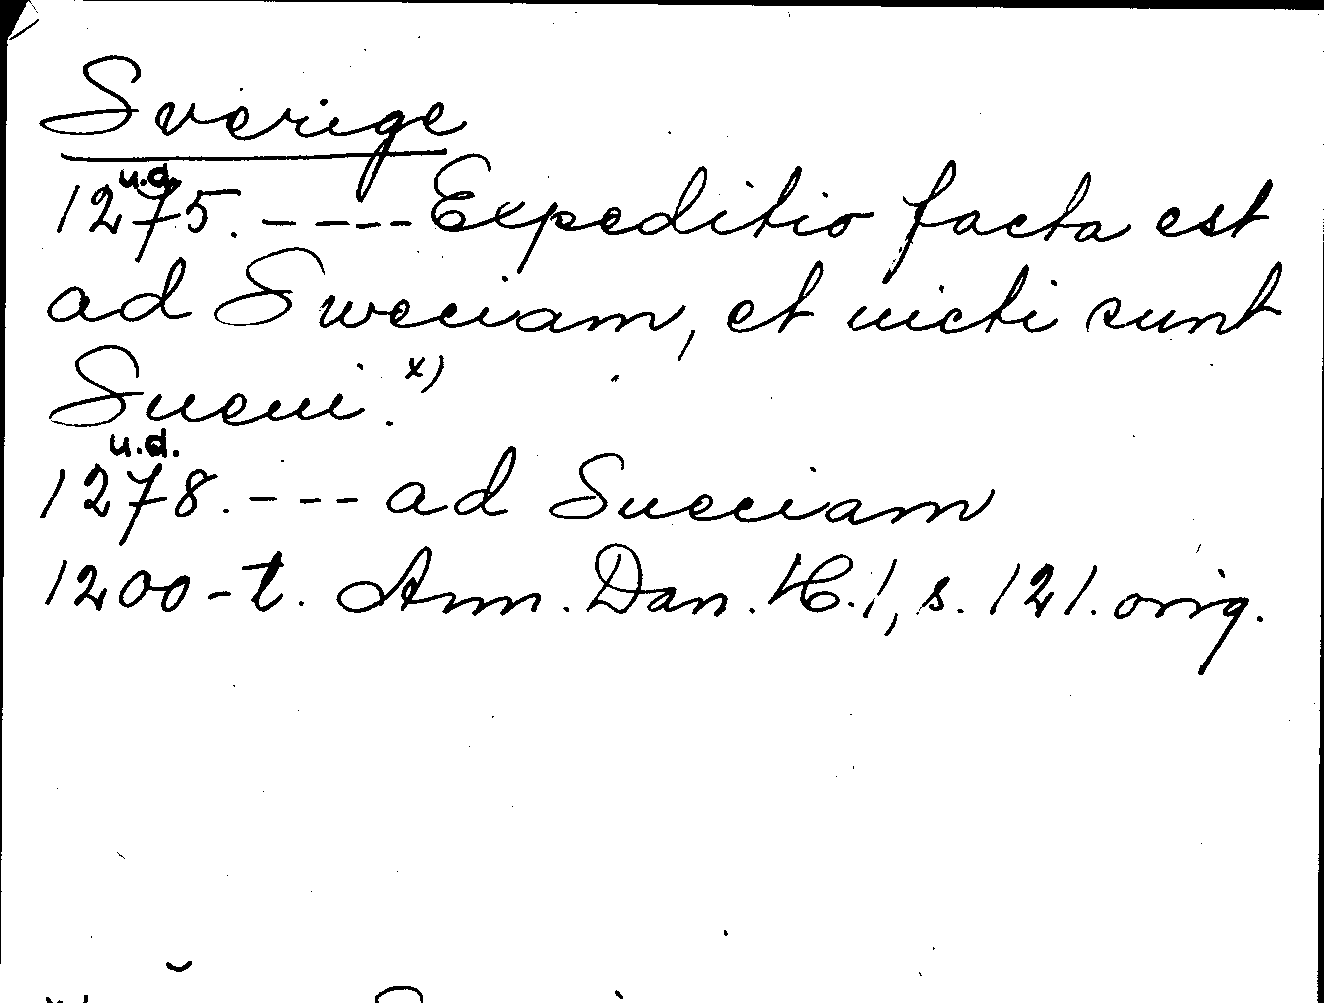 Sverige
u.d.
1275. ---- Expeditio facta est
ad Sweciam, et uicti sunt
Sueui. x)
u.d.
1278. --- ad Sueciam
1200-t. Ann. Dan. K. 1, s. 121. orig.